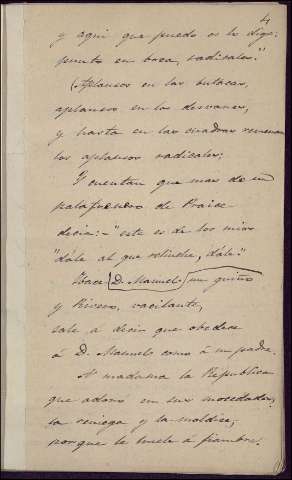 4
y aqui que puedo os lo digo:
punto en boca, radicales."
(Aplausos en las butacas,
aplausos en los desvanes,
y hasta en las cuadras resuenan
los aplausos radicales;
Y cuentan que mas de un
palafrenero de
decia: - "este es de los mios
"dále al que relinche, dále."
Hace D. Manuel un guiño
y Rivero, vacilante,
sale á decir que obedece
á D. Manuel como á un padre.
A madama la República
que adoró en sus mocedades,
la reniega y la maldice,
porque le huele á fiambre.